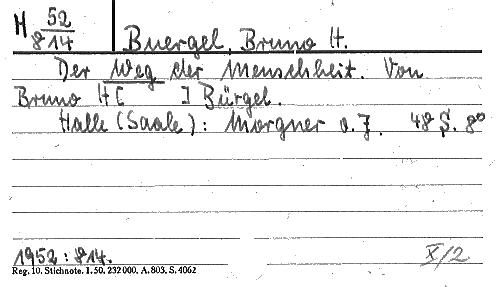 M 52/814
Buergel, Bruno H.
Der Weg der Menschheit. Von
Bruno H[ ] Bürgel.
Halle (Saale): Morgner o.J. 48 S. 8°
1952:814.
X/2
Reg. 10. Stichnote. 1. 50. 232000. A. 803. S. 4062